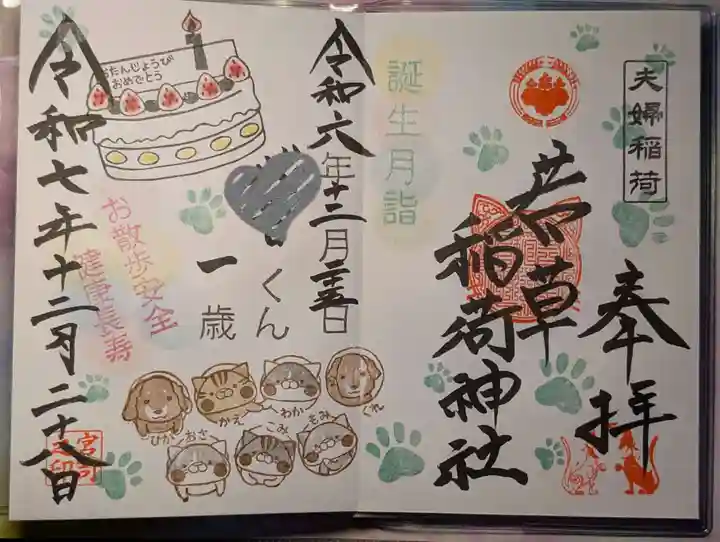 夫婦稲荷
奉拝
若草
稲荷神社
誕生月詣
令和六年十二月三十五日
くん
一歳
おたんじょうび
おめでとう
お散歩安全
健康長寿
令和七年十二月二十八日
宮司
之印
ひかり
かえで
わか
くれ
おさ
こみ
もみ